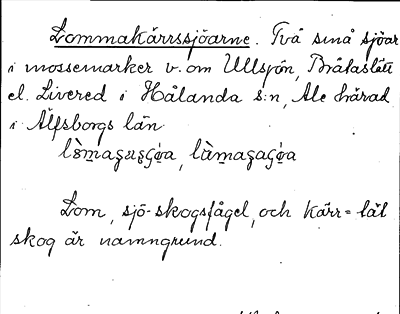 Lommakärrssjöarne. Två små sjöar
i mossemarker v. om Ullsjön, Bråtaslätt
el. Livered i Hålanda s:n, Ale härad
i Älfsborgs län

Lom, sjö-skogsfågel, och kärr = låt
skog är namngrund.